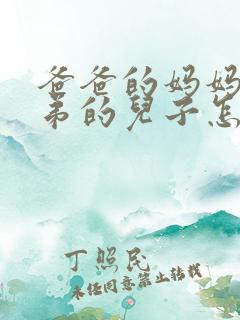 爸爸的妈妈
弟的兒子怎
丁照民
未经同意禁止转载